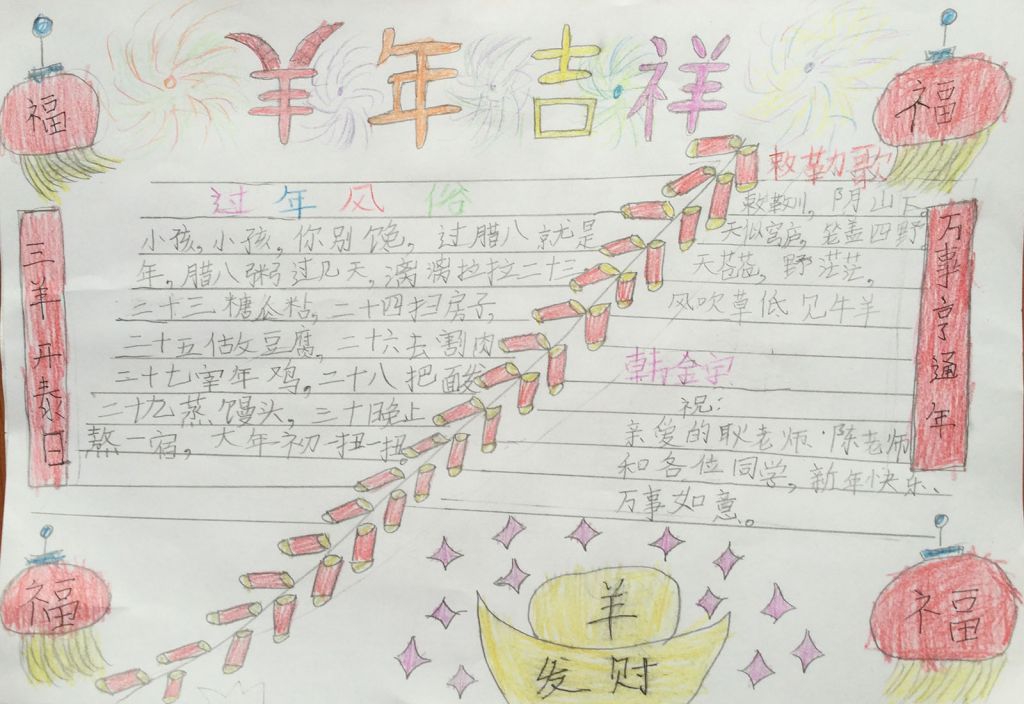 羊年吉祥
福
福
过年风俗
小孩,小孩,你别馋,过腊八就是
年,腊八粥过几天,漓漓拉拉二十三,
二十三糖企粘,二十四扫房子,
二十五估攵豆腐,二十六去割肉
二十七宰年鸡,二十八把面发
二十九蒸馒头,三十晚上
熬一宿,大年初一扭一扭。
敕勒歌
敕勒川,阴山下
天似宫庐,笼盖四野
天苍苍,野茫茫,
风吹草低见牛羊
韩金宇
祝:
亲爱的耿老师·陈老师
和各位同学,新年快乐、
万事如意。
三羊开泰日
万事亨通年
福
福
羊
发财